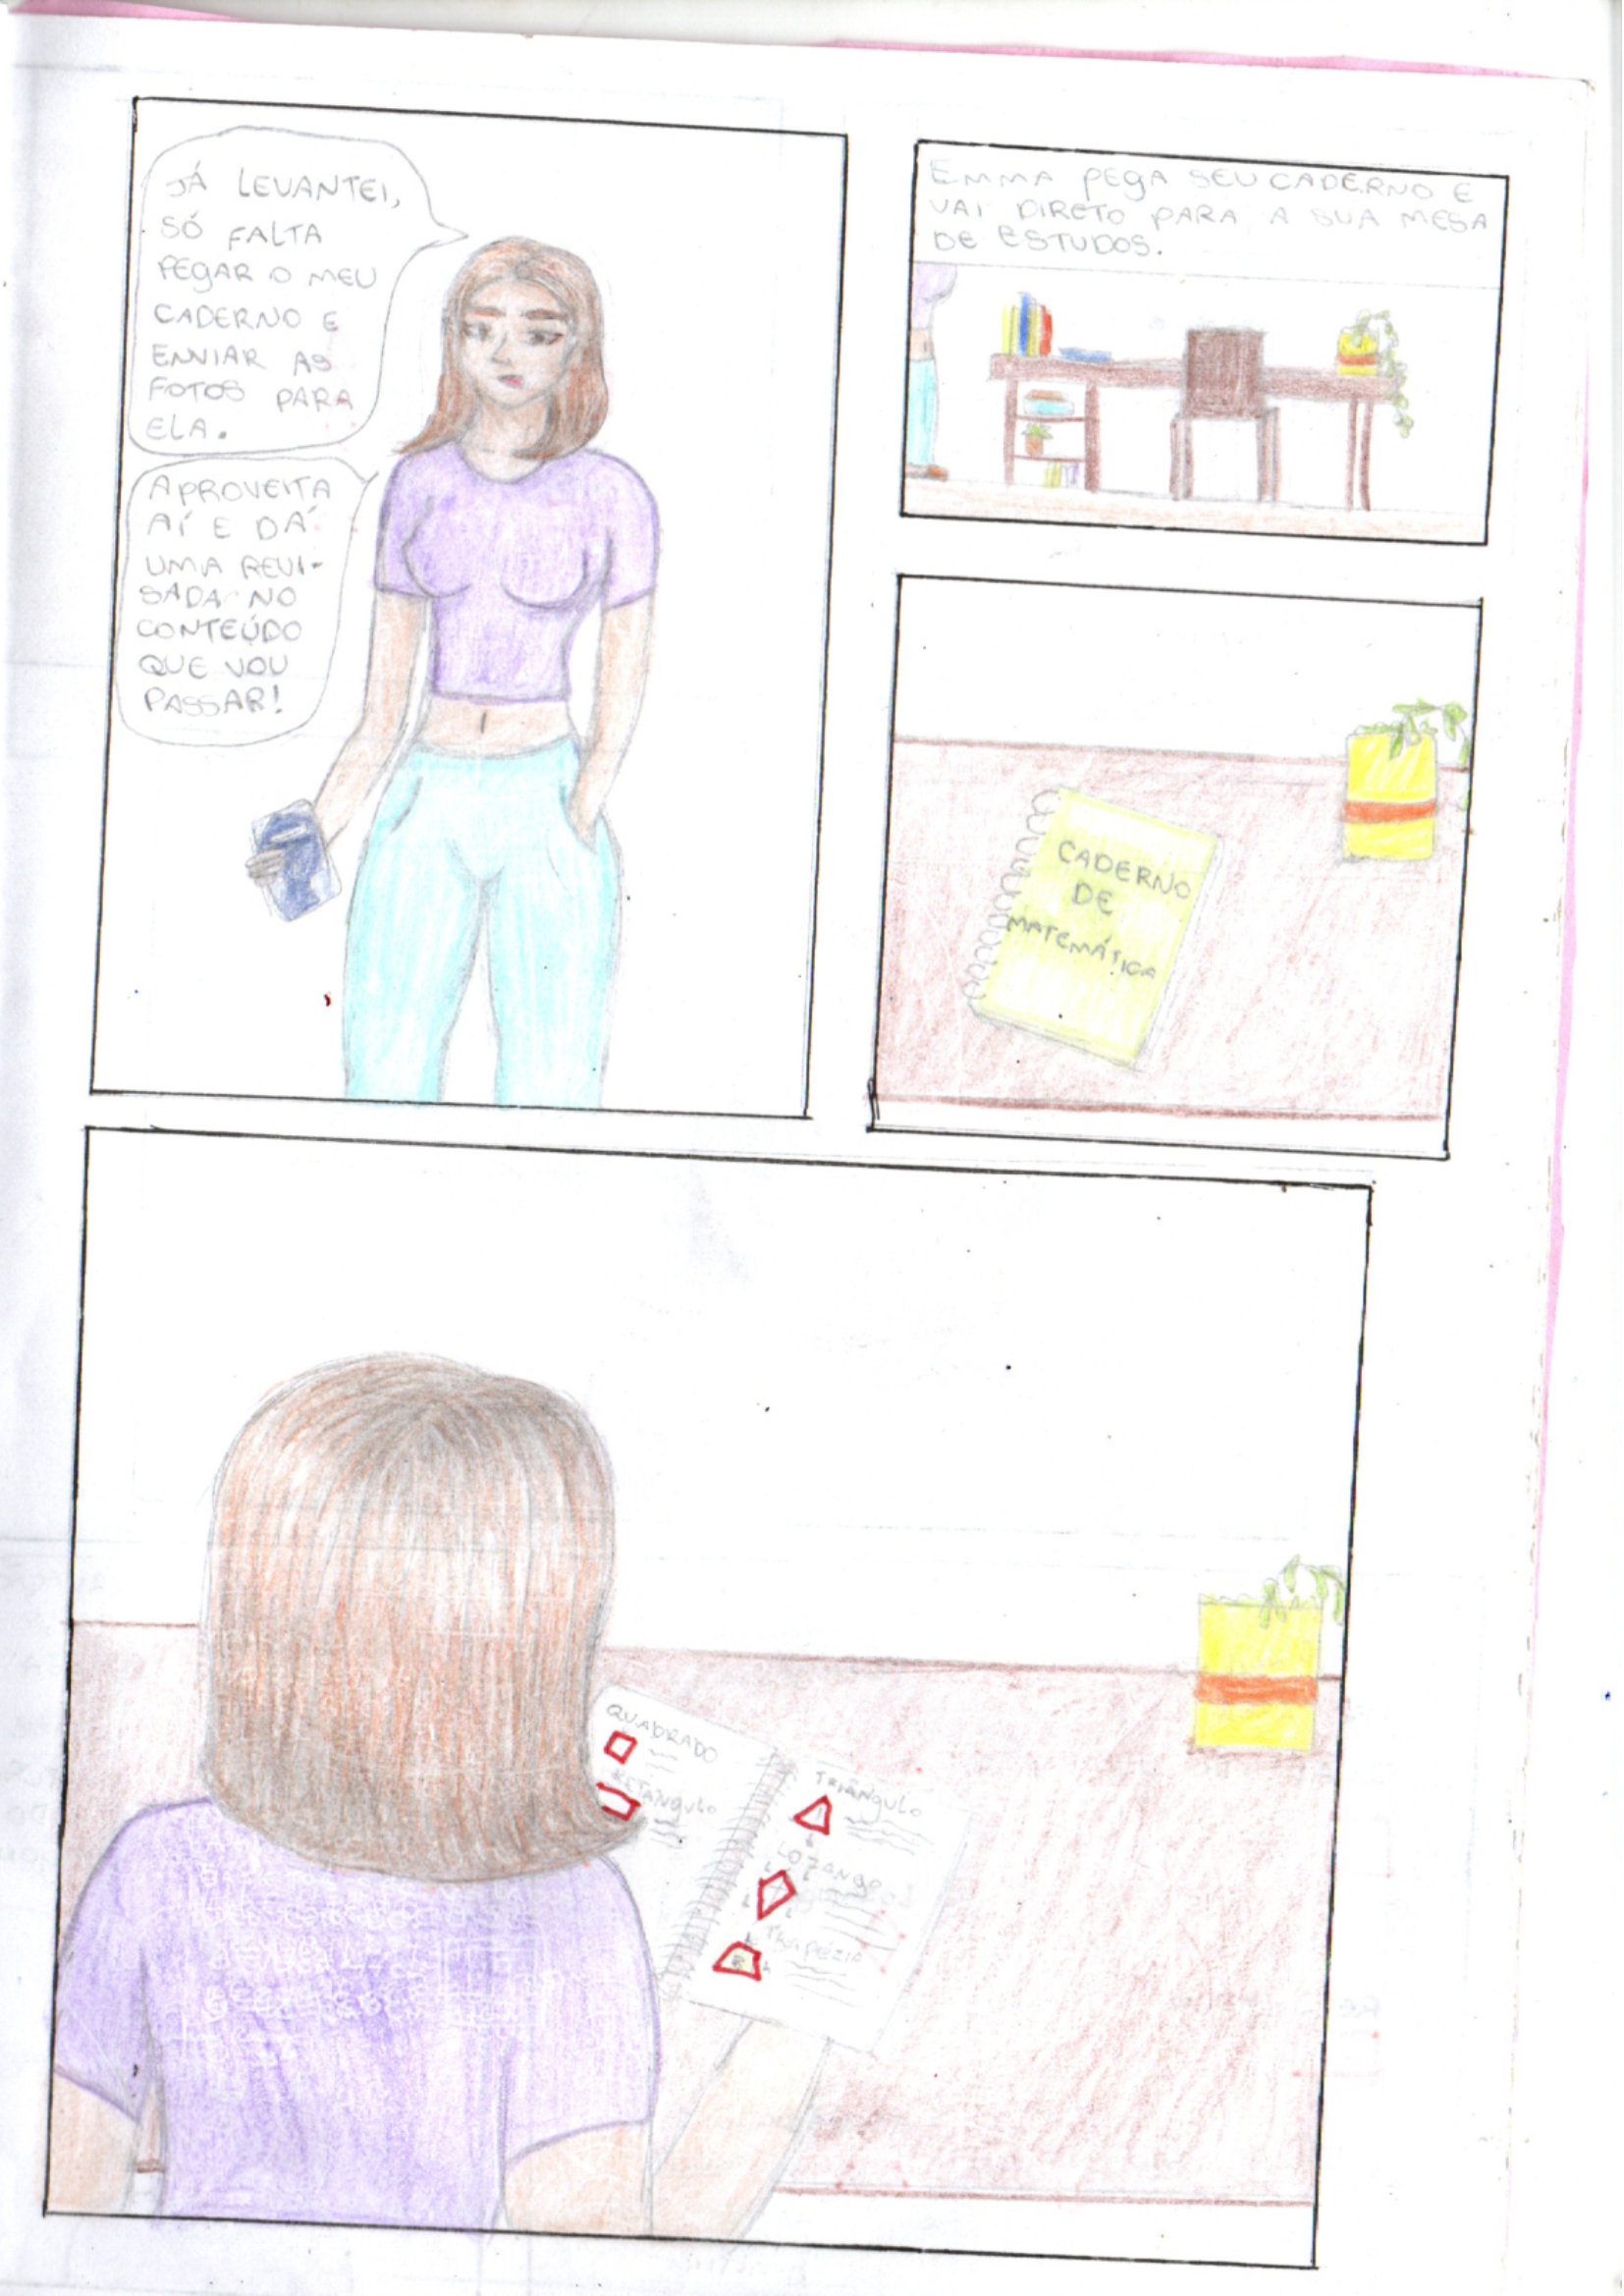 JÁ LEVANTEI,
SÓ FALTA
PEGAR O MEU
CADERNO E
ENVIAR AS
FOTOS PARA
ELA.
APROVEITA
AÍ E DÁ
UMA REVI-
SADA NO
CONTEÚDO
QUE VOU
PASSAR!
EMMA PEGA SEU CADERNO E
VAI DIRETO PARA A SUA MESA
DE ESTUDOS.
CADERNO
DE
MATEMÁTICA
QUADRADO
RETÂNGULO
TRIÂNGULO
LOZANGO
TRAPÉZIO